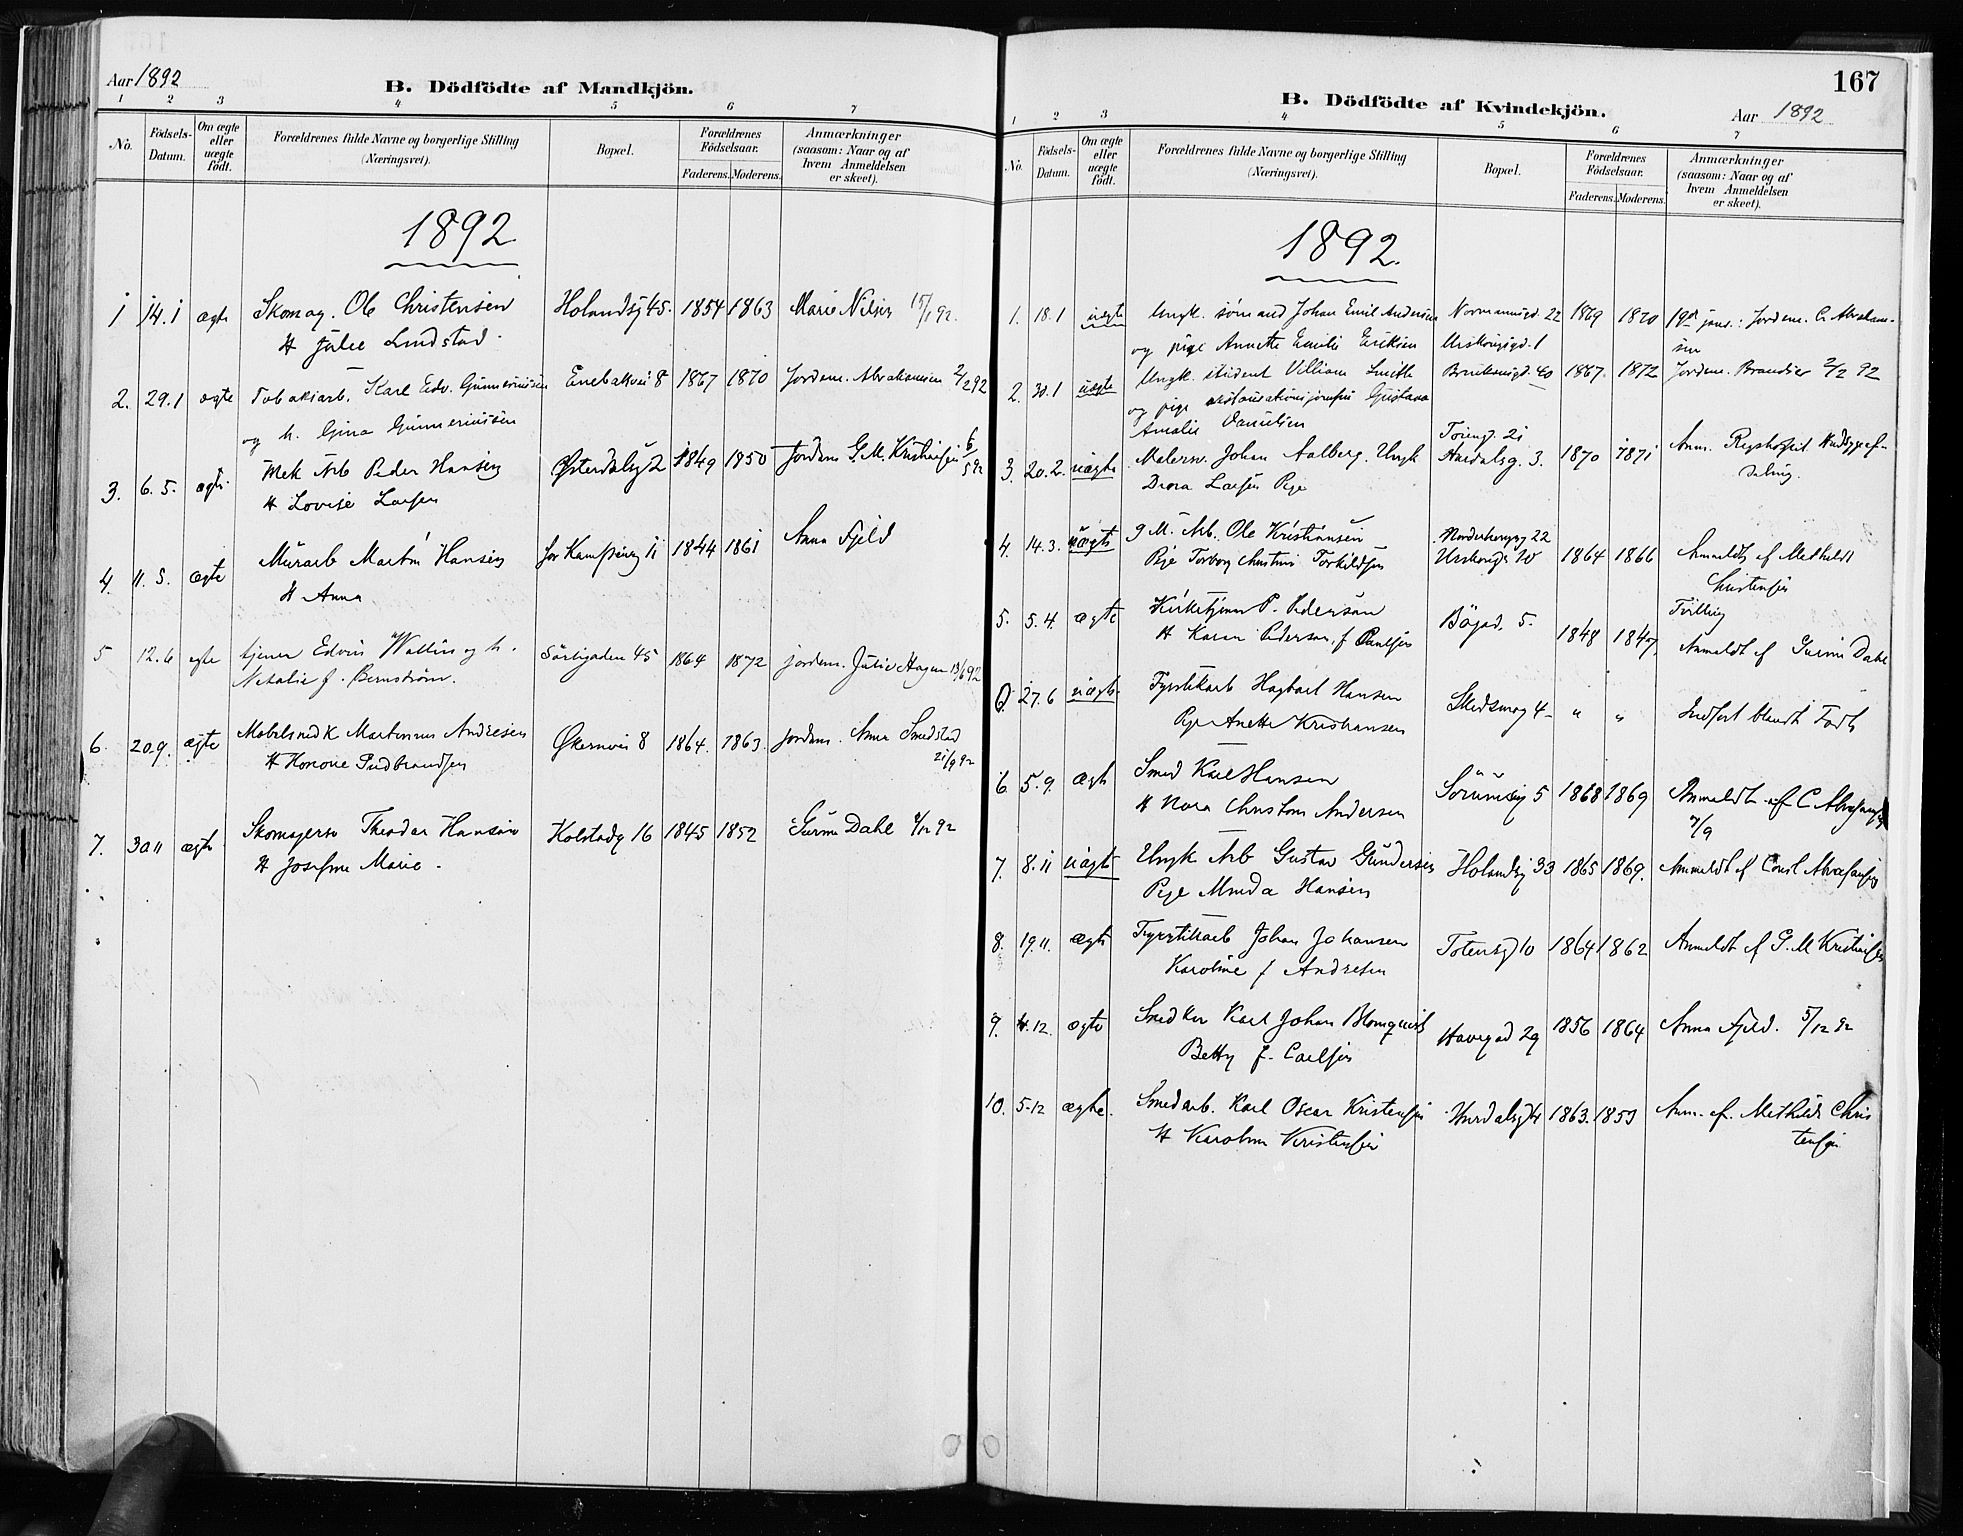 Aar 1892
B. Dödfödte af Mandkjön.
1 2 3 4 5 6 7
No. Födsels-Datum. Om ægte eller uægte födt. Forældrenes fulde Navne og borgerlige Stilling (Næringsvei). Bopæl. Forældrenes Födselsaar. Faderens. Moderens. Anmærkninger (saasom: Naar og af hvem Anmeldelsen er skeet).
1892
1 14.1 ægte Skomag. Ole Christensen Holandsg 45. 1854 1863 Marie Nilsen 15/1 92.
H Julie Lindstad.
2. 29.1 ægte Tobaksarb. Karl Edv. Gunneriusen Enebakvei 8 1867 1870 Jordem. Abrahamsen 2/2 92
og h. Gina Gunneriusen
3. 6. 5. ægte Mek Arb Peder Hansen Østerdalsg 2 1849 1850 Jordem G. M. Kristiansen 6/5 92
H Lovise Larsen
4. 11. 5. ægte Murarb Martin Hansen 1844 1861 Anna Fjeld
H Anna
5 12.6 egte tjener Edvin Wallin og h. Sörligaden 45 1864 1872 jordem. Julie Hagen 13/6 92
Natalie f. Bernström.
6. 20.9. ægte Mobelsnedk Martinius Andresen Økernvei 8 1864. 1863. Jordem. Anna Smedstad
H Honorie Gudbrandsen 21/9 92
7. 30 11 ægte Skomagersv Theodor Hansen Kolstadg 16 1845 1852 Gurine Dahl 4/12 92
H Josefine Marie.
167
B. Dödfödte af Kvindekjön.
Aar 1892
1 2 3 4 5 6 7
No. Födsels-Datum. Om ægte eller uægte födt. Forældrenes fulde Navne og borgerlige Stilling (Næringsvei). Bopæl. Forældrenes Födselsaar. Faderens. Moderens. Anmærkninger (saasom: Naar og af hvem Anmeldelsen er skeet).
1892.
1. 18.1 uægte Ungk. sømand Johan Emil Andersen Normannsgd. 22 1869 1870 19de jan.: Jordem. C. Abraham-
og pige Annette Emilie Eriksen Urskougsgd. 1 sen
2. 30.1 uægte Ungk. student Villiam Smith 40 1867. 1872 Jordem. Brandier 2/2 92
og pige Gustava
Amalie Danielsen
Töieng. 21
3. 20.2. uægte Malersv. Johan Aalberg. Ungk Hurdalsg. 3. 1870 1871 Anm.
Dvora Larsen Pige deling.
4. 14.3. uægte g M. Arb. Ole Kristiansen 22
Pige Torborg Christine Torkildsen Urskougs 10 1864 1866 Anmeldt af Methilde
Christensen
5. 5.4. ægte Kirketjener P. Pedersen Bögad. 5. 1848 1847 Tvilling
H Karen Pedersen, f Paulsen Anmeldt af Gurine Dahl
0. 27.6 uægte Fyrstikarb Hagbart Hansen Skedsmog 4 " " Indfört blandt Födte
Pige Anette Kristiansen
6 5.9. Ægte Smed Karl Hansen Sörumsg 5 1868 1869 Anmeldt af C Abrahamsen
H Nora Andersen 7/9
7. 8.11 uægte Ungk Arb Gustav Gundersen Holandsg 33 1865 1869. Anmeldt af Abrahamsen
Pige Minda Hansen
8. 19.11. ægte Fyrstikarb Johan Johansen Totensg 10 1864 1862 Anmeldt af G. M Kristiansen
Karoline f Andresen
9. 4.12. ægte Karl Johan Blomqvist Havegad 29 1856 1864 Anna Fjeld. 5/12 92
Betty f. Carlsen
10. 5-12 ægte. Smedarb. Karl Oscar Kristensen Hurdalsg 4 1863. 1859 Anm. af. Methilde Chris
H Karoline Kristensen tensen